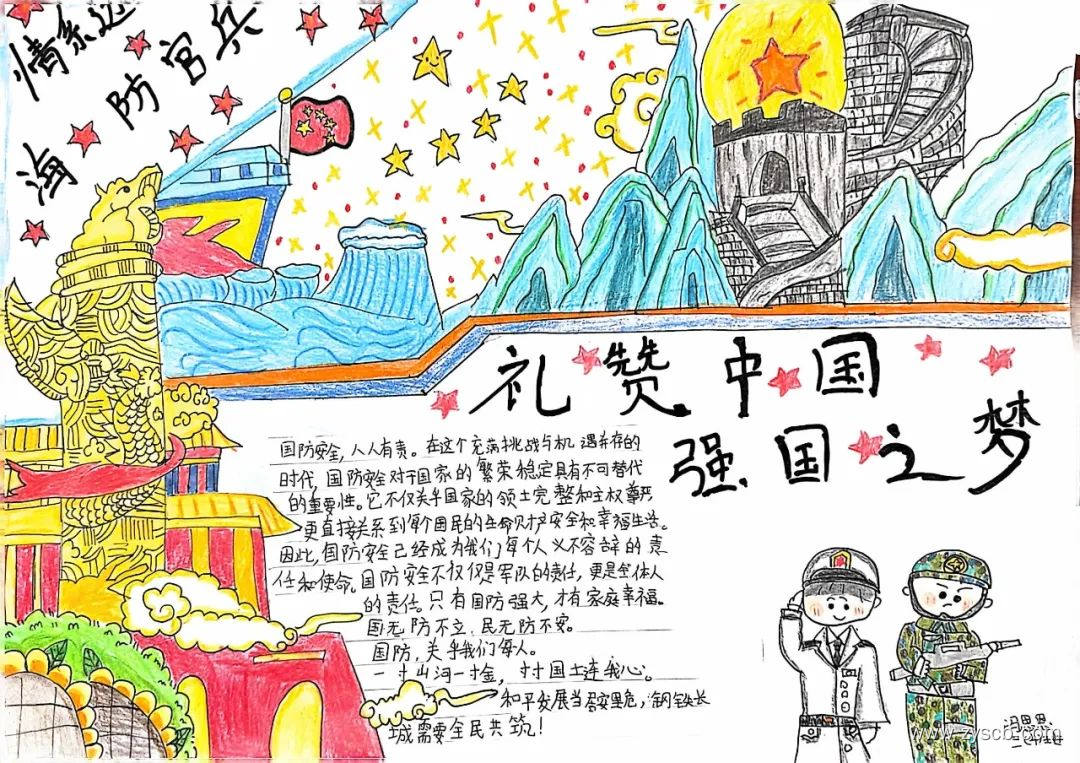 情系边
海防官兵
礼赞中国
强国之梦
国防安全，人人有责。在这个充满挑战与机遇并存的
时代，国防安全对于国家的繁荣稳定具有不可替代
的重要性。它不仅关乎国家的领土完整和主权尊严
更直接关系到每个国民的生命财产安全和幸福生活。
因此，国防安全已经成为我们每个人义不容辞的责
任和使命。国防安全不仅仅是军队的责任，更是全体人
的责任。只有国防强大，才有家庭幸福。
国无防不立，民无防不安。
国防，关乎我们每人。
一寸山河一寸金，寸寸国土连我心。
和平发展当居安思危，钢铁长
城需要全民共筑！
www.zyscb.com